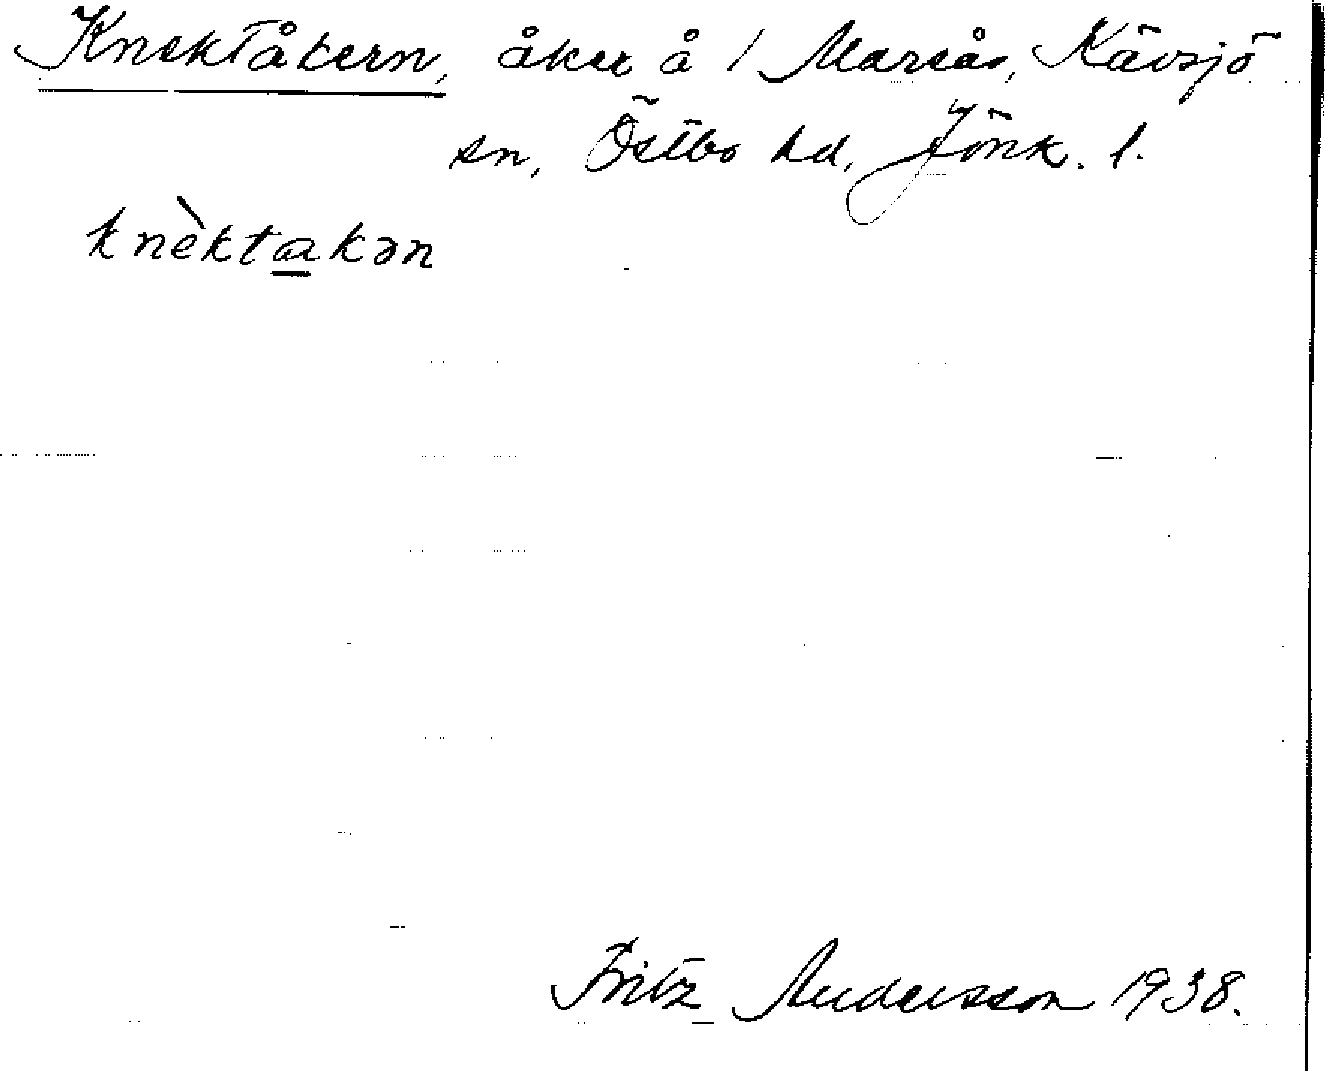 Knektåkern, åker å / Mareås, Kävsjö
sn, Östbo hd, Jönk. l.
knèktakən
Fritz Andersson 1938.